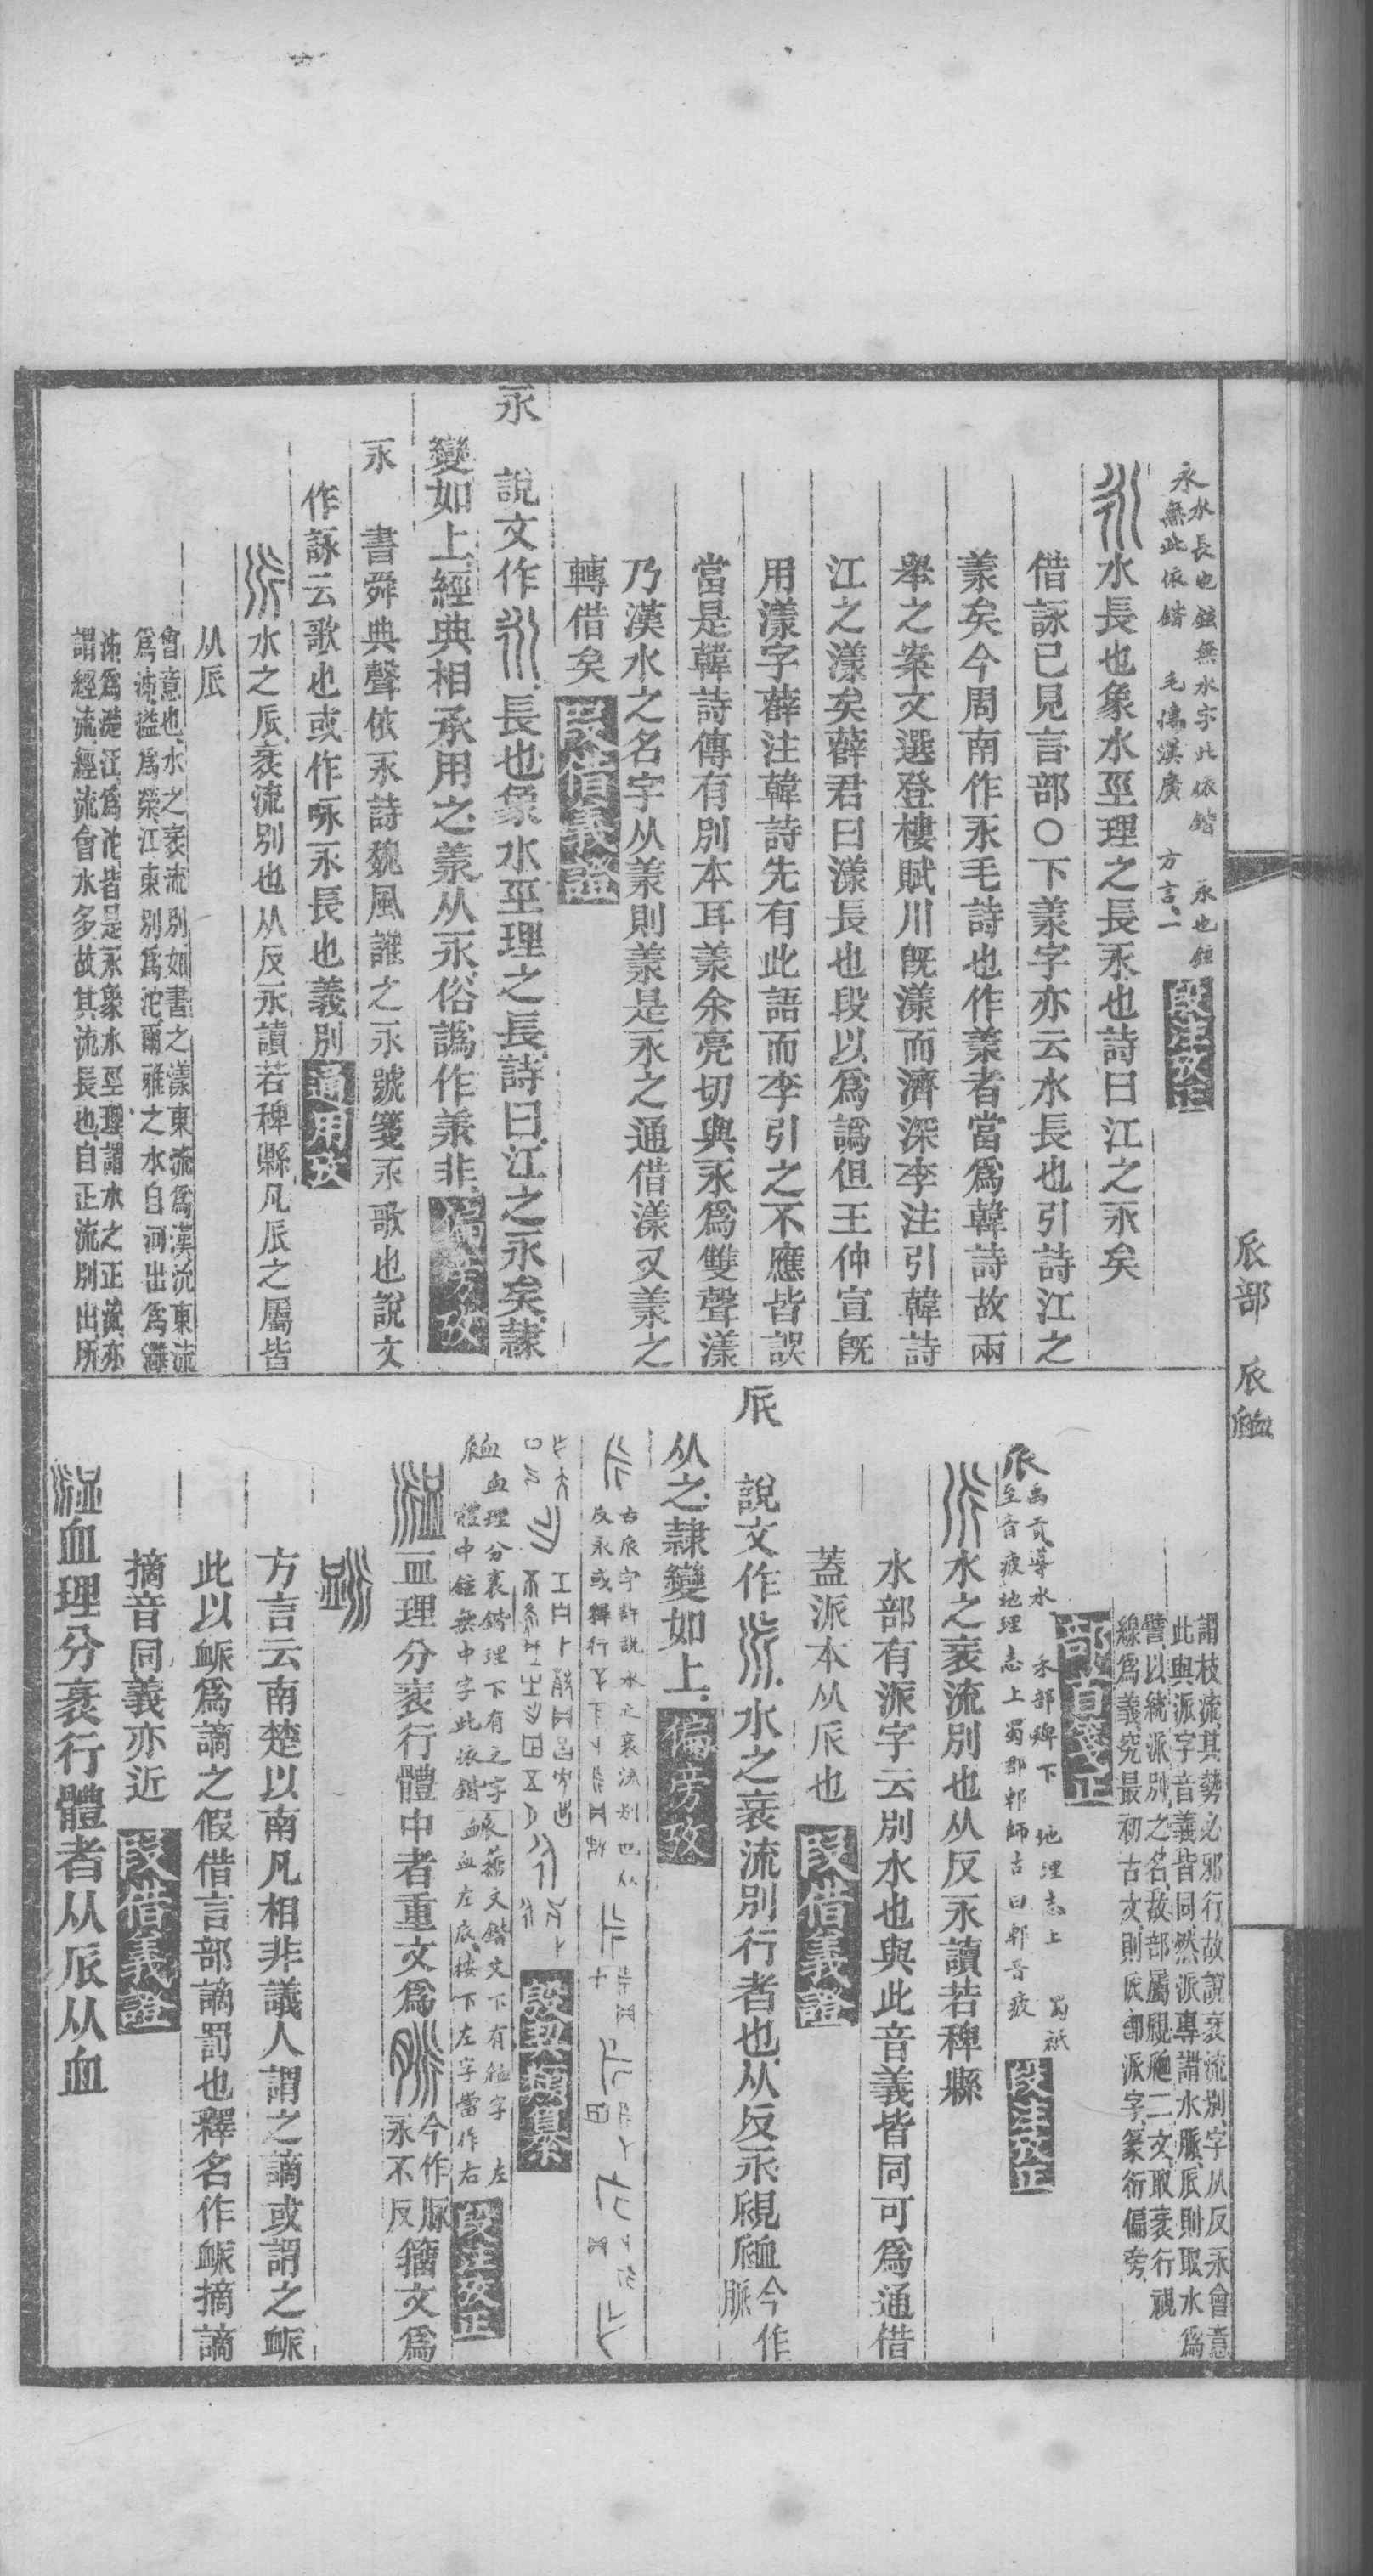 𠂢部　𠂢𧖴
永水長也鉉無水字此依鍇　永也鉉
無此依鍇　毛傳漢廣　方言一　段注攷正
水長也象水巠理之長永也詩曰江之永矣
借詠已見言部○下羕字亦云水長也引詩江之
羕矣今周南作永毛詩也作羕者當爲韓詩故兩
舉之案文選登樓賦川旣漾而濟深李注引韓詩
江之漾矣薛君曰漾長也段以爲譌但王仲宣旣
用漾字薛注韓詩先有此語而李引之不應皆誤
當是韓詩傳有別本耳羕余亮切與永爲雙聲漾
乃漢水之名字从羕則羕是永之通借漾又羕之
轉借矣　段借義證
永　說文作　長也象水巠理之長詩曰江之永矣隷
變如上經典相承用之羕从永俗譌作羕非　偏旁攷
永　書舜典聲依永詩魏風誰之永號箋永歌也說文
作詠云歌也或作咏永長也義別　通用攷
水之𠂢衺流別也从反永讀若稗縣凡𠂢之屬皆
从𠂢
會意也水之衺流別如書之漾東流爲漢沇東流
爲泲溢爲滎江東別爲沱爾雅之水自河出爲灉
泲爲濋江爲沱皆是永象水巠理謂水之正流亦
謂經流經流會水多故其流長也自正流別出所
謂枝流其勢必邪行故說衺流別字从反永會意
此與派字音義皆同然派專謂水脈𠂢則取水爲
譬以統派別之名故部屬覛𧖴二文取衺行視
線爲義究最初古文則𠂢卽派字篆衍偏旁
部首箋正
𠂢禹貢導水　禾部稗下　地理志上　蜀祇
至音疲地理志上蜀郡郫師古曰郫音疲　段注攷正
水之衺流別也从反永讀若稗縣
水部有派字云別水也與此音義皆同可爲通借
蓋派本从𠂢也　段借義證
𠂢　說文作　水之衺流別行者也从反永覛𧖴今作脈
从之隷變如上　偏旁攷
古𠂢字許說水之衺流別也从
反永或釋行
殷契類纂
𧖴血理分衺鍇理下有之字　籒文鍇文下有𧖴字　左
體中鉉無中字此依鍇　血左𠂢按下左字當作右　段注攷正
血理分衺行體中者重文爲　今作脈永不反　籒文爲
方言云南楚以南凡相非議人謂之謫或謂之衇
此以衇爲謫之假借言部謫罰也釋名作衇摘謫
摘音同義亦近　段借義證
血理分衺行體者从𠂢从血